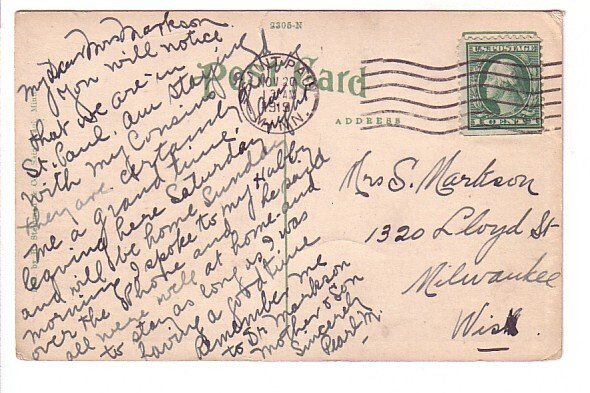 2305-N
Post Card
ADDRESS
ST. PAUL
NOV 20
1919
MINN.
U.S. POSTAGE
1 CENT
My Dear Mrs Markson
You will notice
that we are in
St. Paul. Am staying
with my Cousins
they are certainly giving
me a grand time.
leaving here Saturday night
and will be home Sunday
morning I spoke to my Hubby
over the Phone and he said
all were well at home and
to stay as long as I was
having a good time
Remember me
to Dr. Markson
mother & Son
Sincerely
Pearl M.
Mrs S. Markson
1320 Lloyd St
Milwaukee
Wis